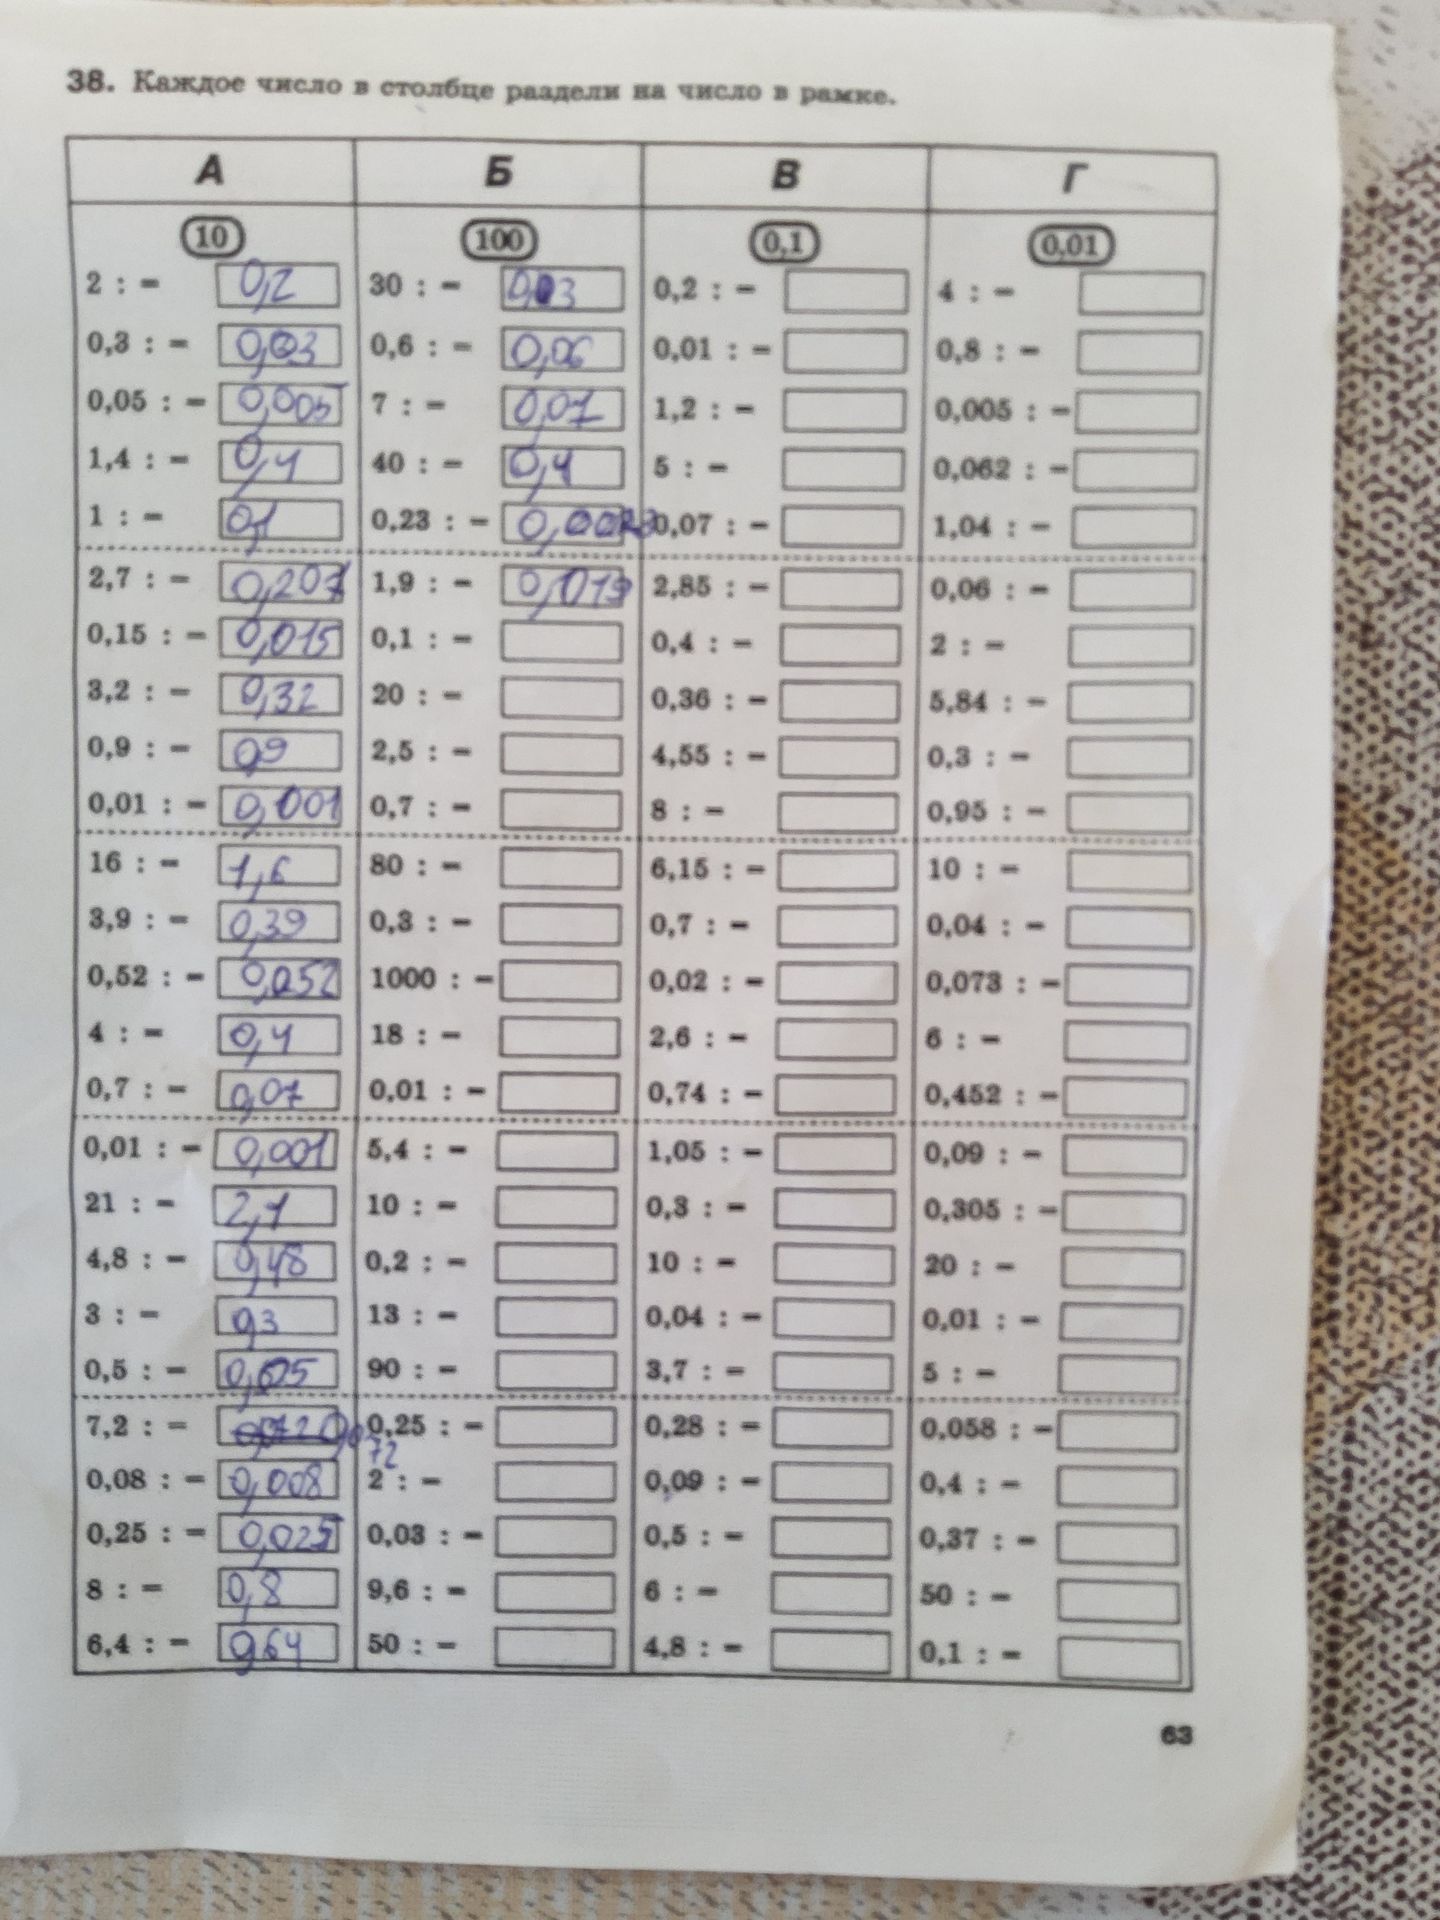 38. Каждое число в столбце раздели на число в рамке.
А Б В Г
10 100 0,1 0,01
2 : = 0,2 30 : = 0,03 0,2 : = 4 : =
0,3 : = 0,03 0,6 : = 0,06 0,01 : = 0,8 : =
0,05 : = 0,005 7 : = 0,07 1,2 : = 0,005 : =
1,4 : = 0,4 40 : = 0,4 5 : = 0,062 : =
1 : = 0,1 0,23 : = 0,0023 0,07 : = 1,04 : =
2,7 : = 0,207 1,9 : = 0,019 2,85 : = 0,06 : =
0,15 : = 0,015 0,1 : = 0,4 : = 2 : =
3,2 : = 0,32 20 : = 0,36 : = 5,84 : =
0,9 : = 0,9 2,5 : = 4,55 : = 0,3 : =
0,01 : = 0,001 0,7 : = 8 : = 0,95 : =
16 : = 1,6 80 : = 6,15 : = 10 : =
3,9 : = 0,39 0,3 : = 0,7 : = 0,04 : =
0,52 : = 0,052 1000 : = 0,02 : = 0,073 : =
4 : = 0,4 18 : = 2,6 : = 6 : =
0,7 : = 0,07 0,01 : = 0,74 : = 0,452 : =
0,01 : = 0,001 5,4 : = 1,05 : = 0,09 : =
21 : = 2,1 10 : = 0,3 : = 0,305 : =
4,8 : = 0,48 0,2 : = 10 : = 20 : =
3 : = 0,3 13 : = 0,04 : = 0,01 : =
0,5 : = 90 : = 3,7 : = 5 : =
7,2 : = 0,25 : = 0,28 : = 0,058 : =
72
0,08 : = 0,008 2 : = 0,09 : = 0,4 : =
0,25 : = 0,025 0,03 : = 0,5 : = 0,37 : =
8 : = 0,8 9,6 : = 6 : = 50 : =
6,4 : = 0,64 50 : = 4,8 : = 0,1 : =
63